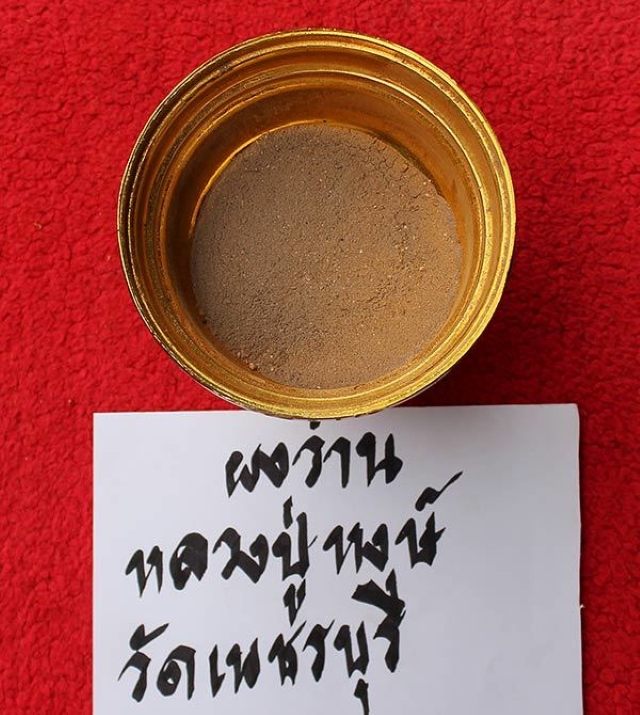 ผงว่าน
หลวงปู่หงษ์
วัดเพชรบุรี